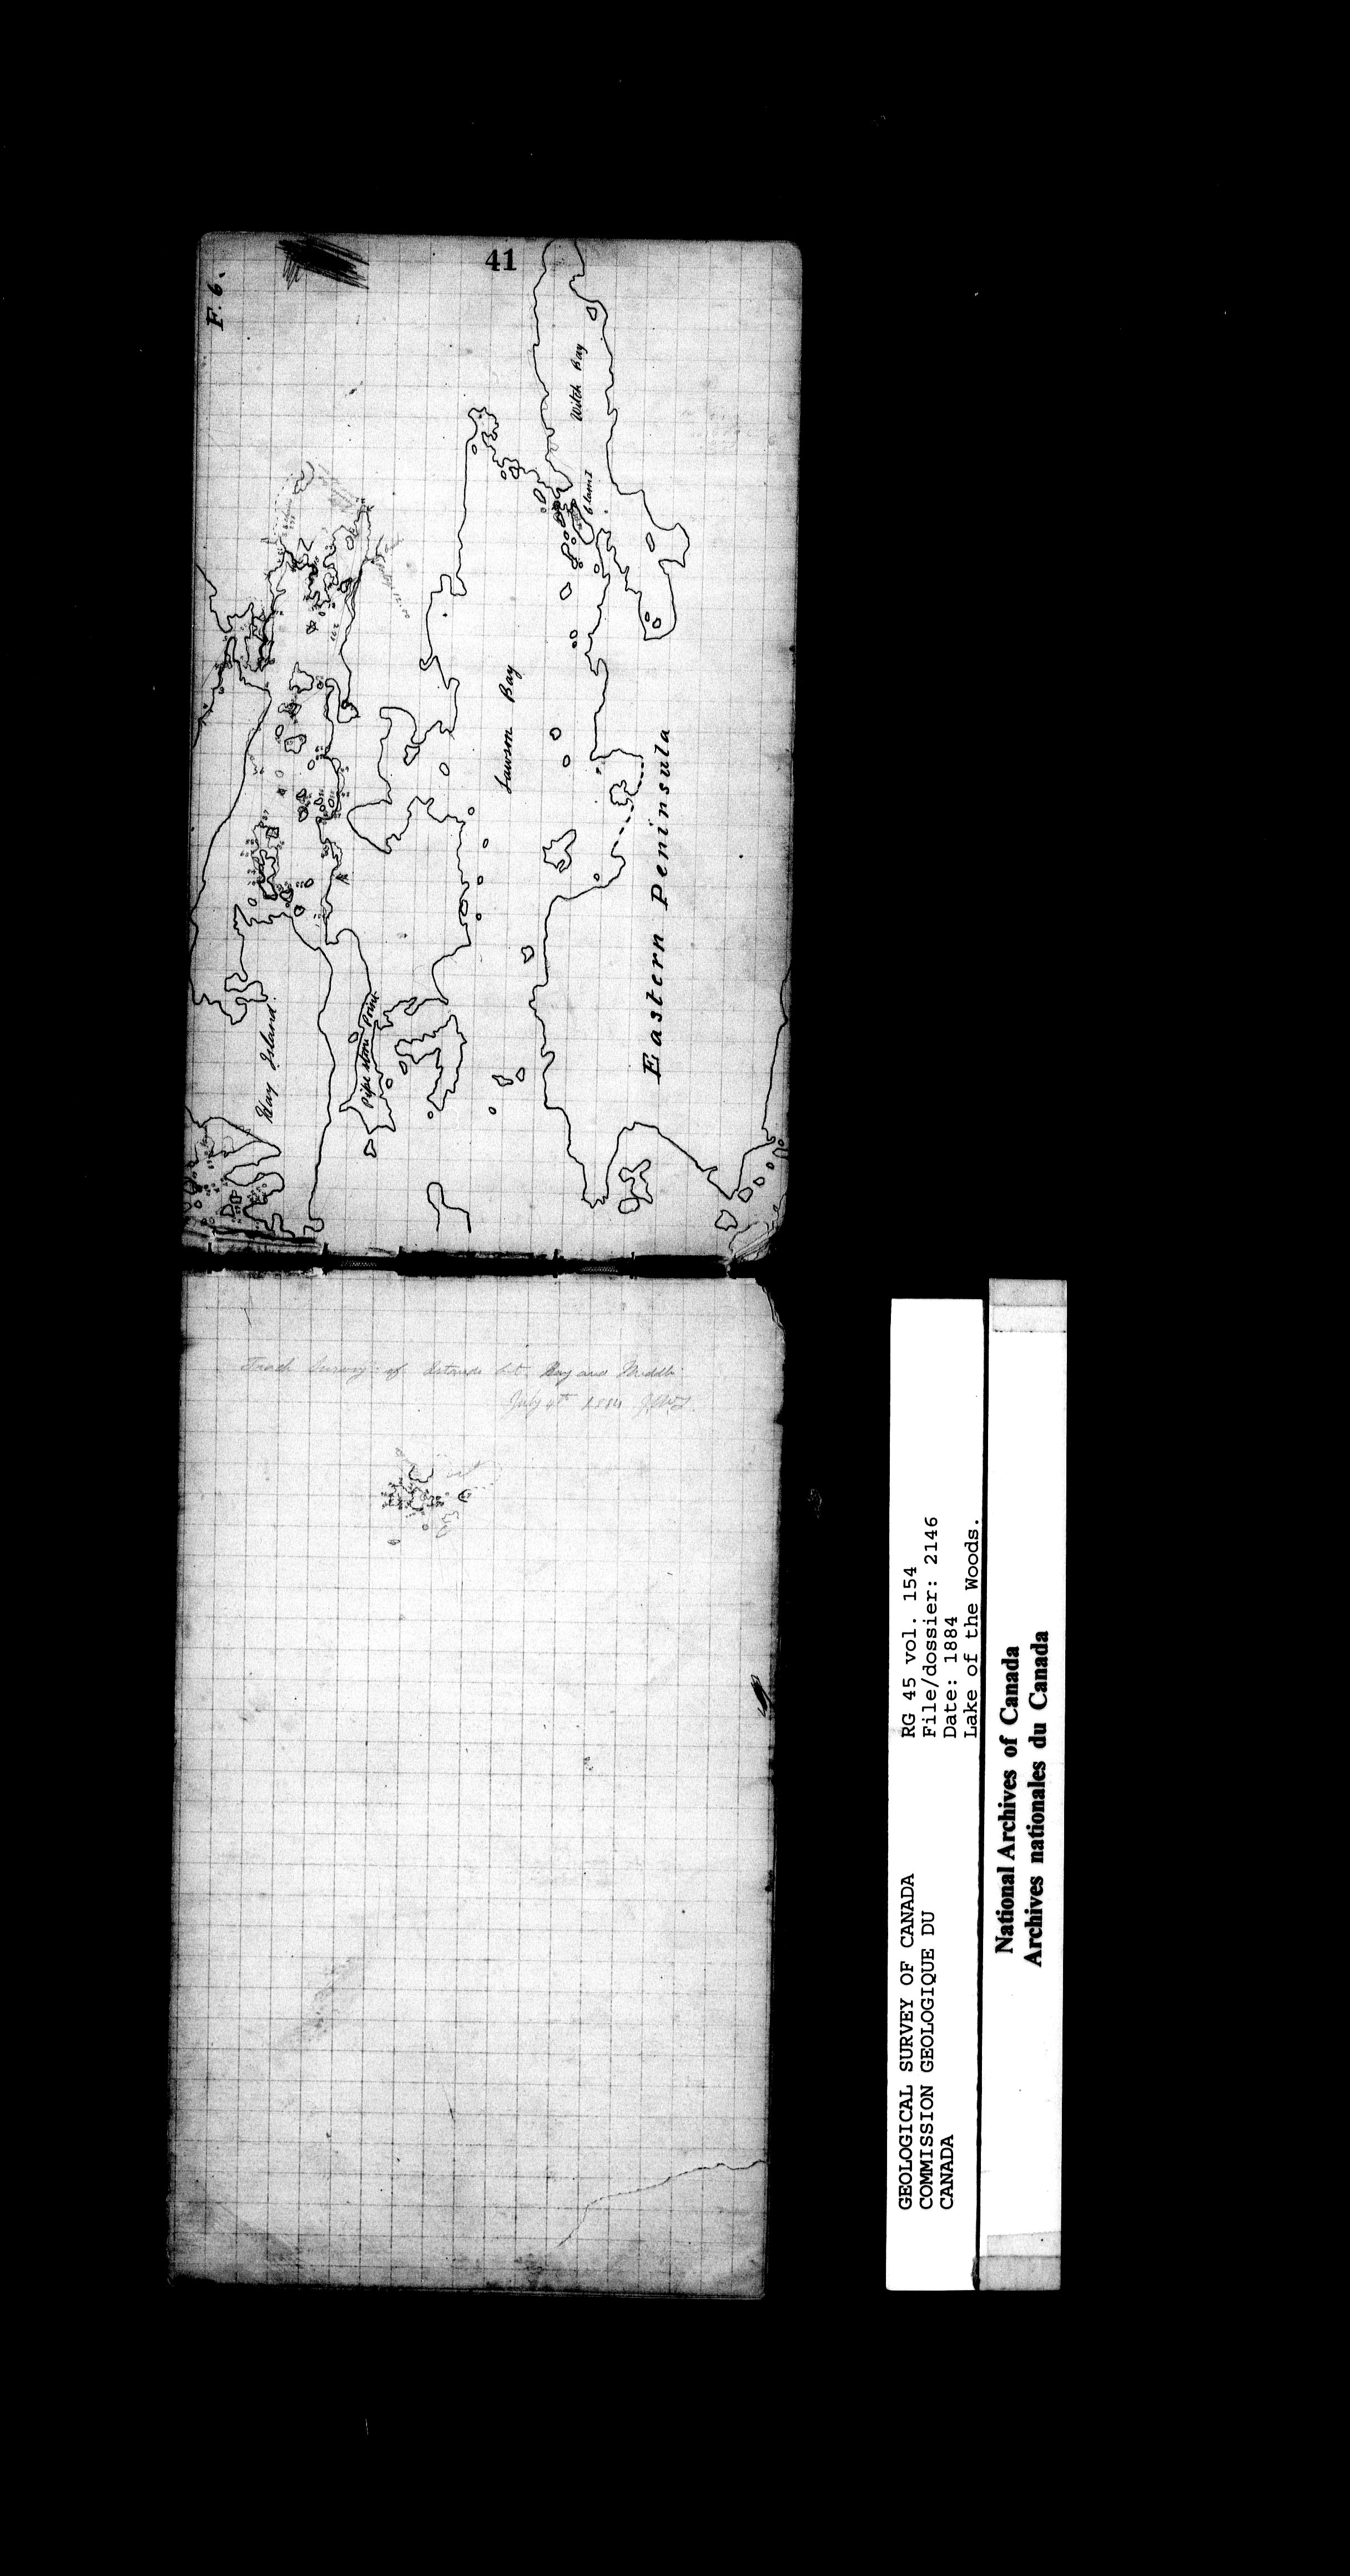 41
F. 6.
Witch Bay
Lawson Bay
Hay Island
Pipe Stone Point
Eastern Peninsula
Track Survey of Islands bet. Hay and Middle
July 4th 1884
GEOLOGICAL SURVEY OF CANADA
COMMISSION GEOLOGIQUE DU
CANADA
RG 45 vol. 154
File/dossier: 2146
Date: 1884
Lake of the Woods.
National Archives of Canada
Archives nationales du Canada